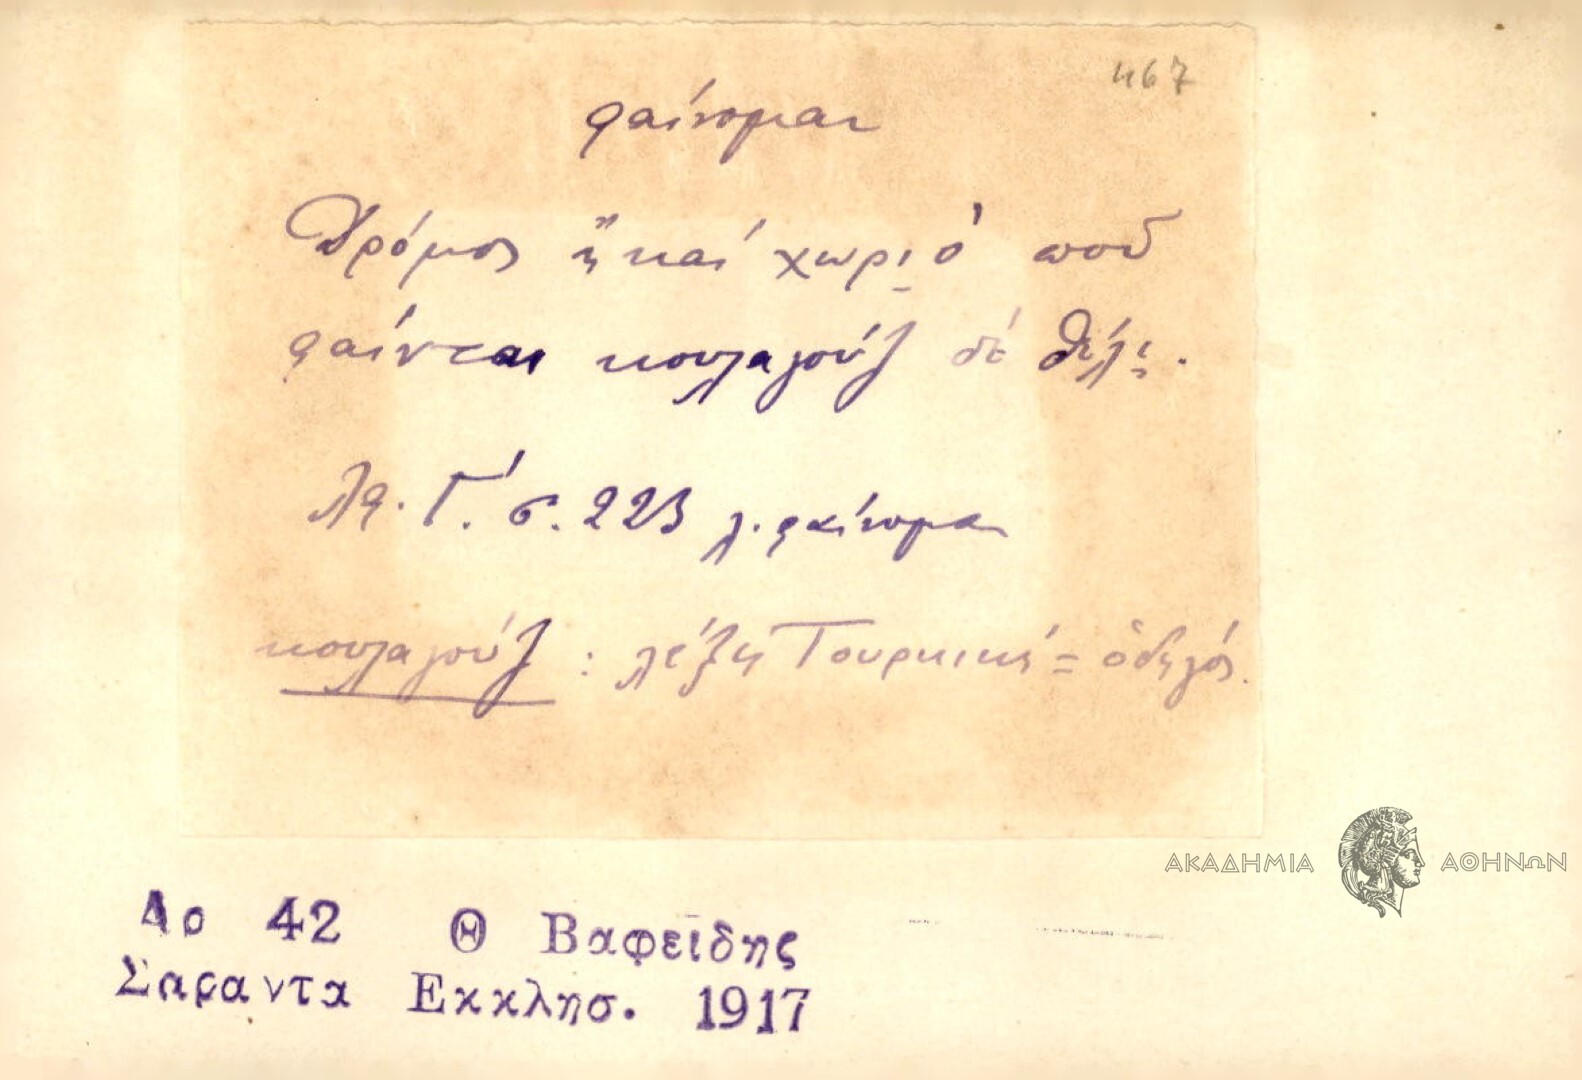 467
φαίνομαι
Δρόμος ἤ καί χωριό ποῦ
φαίνεται κουλαγούζ δέ θέλει.
λφ. Γ΄. σ. 223 λ. φαίνομαι
κουλαγούζ : λέξη Τουρκική = ὁδηγός.
ΑΚΑΔΗΜΙΑ ΑΘΗΝΩΝ
Αρ 42 Θ Βαφείδης
Σαραντα Εκκλησ. 1917